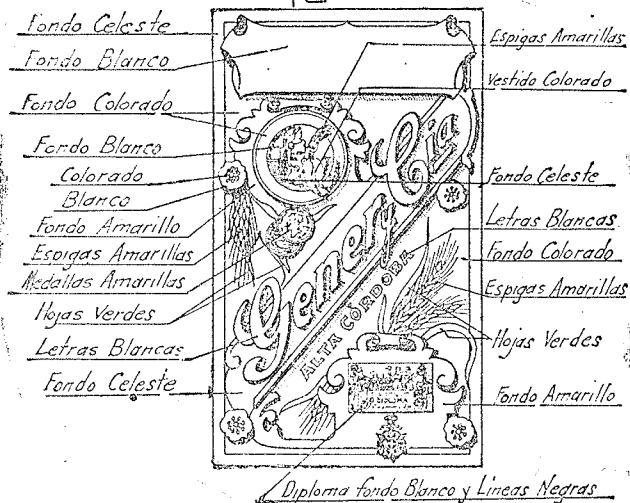 Fondo Celeste
Fondo Blanco
Fondo Colorado
Fondo Blanco
Colorado
Blanco
Fondo Amarillo
Espigas Amarillas
Medallas Amarillas
Hojas Verdes
Letras Blancas
Fondo Celeste
Genery Cia
ALTA CÓRDOBA
Espigas Amarillas
Vestido Colorado
Fondo Celeste
Letras Blancas
Fondo Colorado
Espigas Amarillas
Hojas Verdes
Fondo Amarillo
Diploma fondo Blanco y Lineas Negras